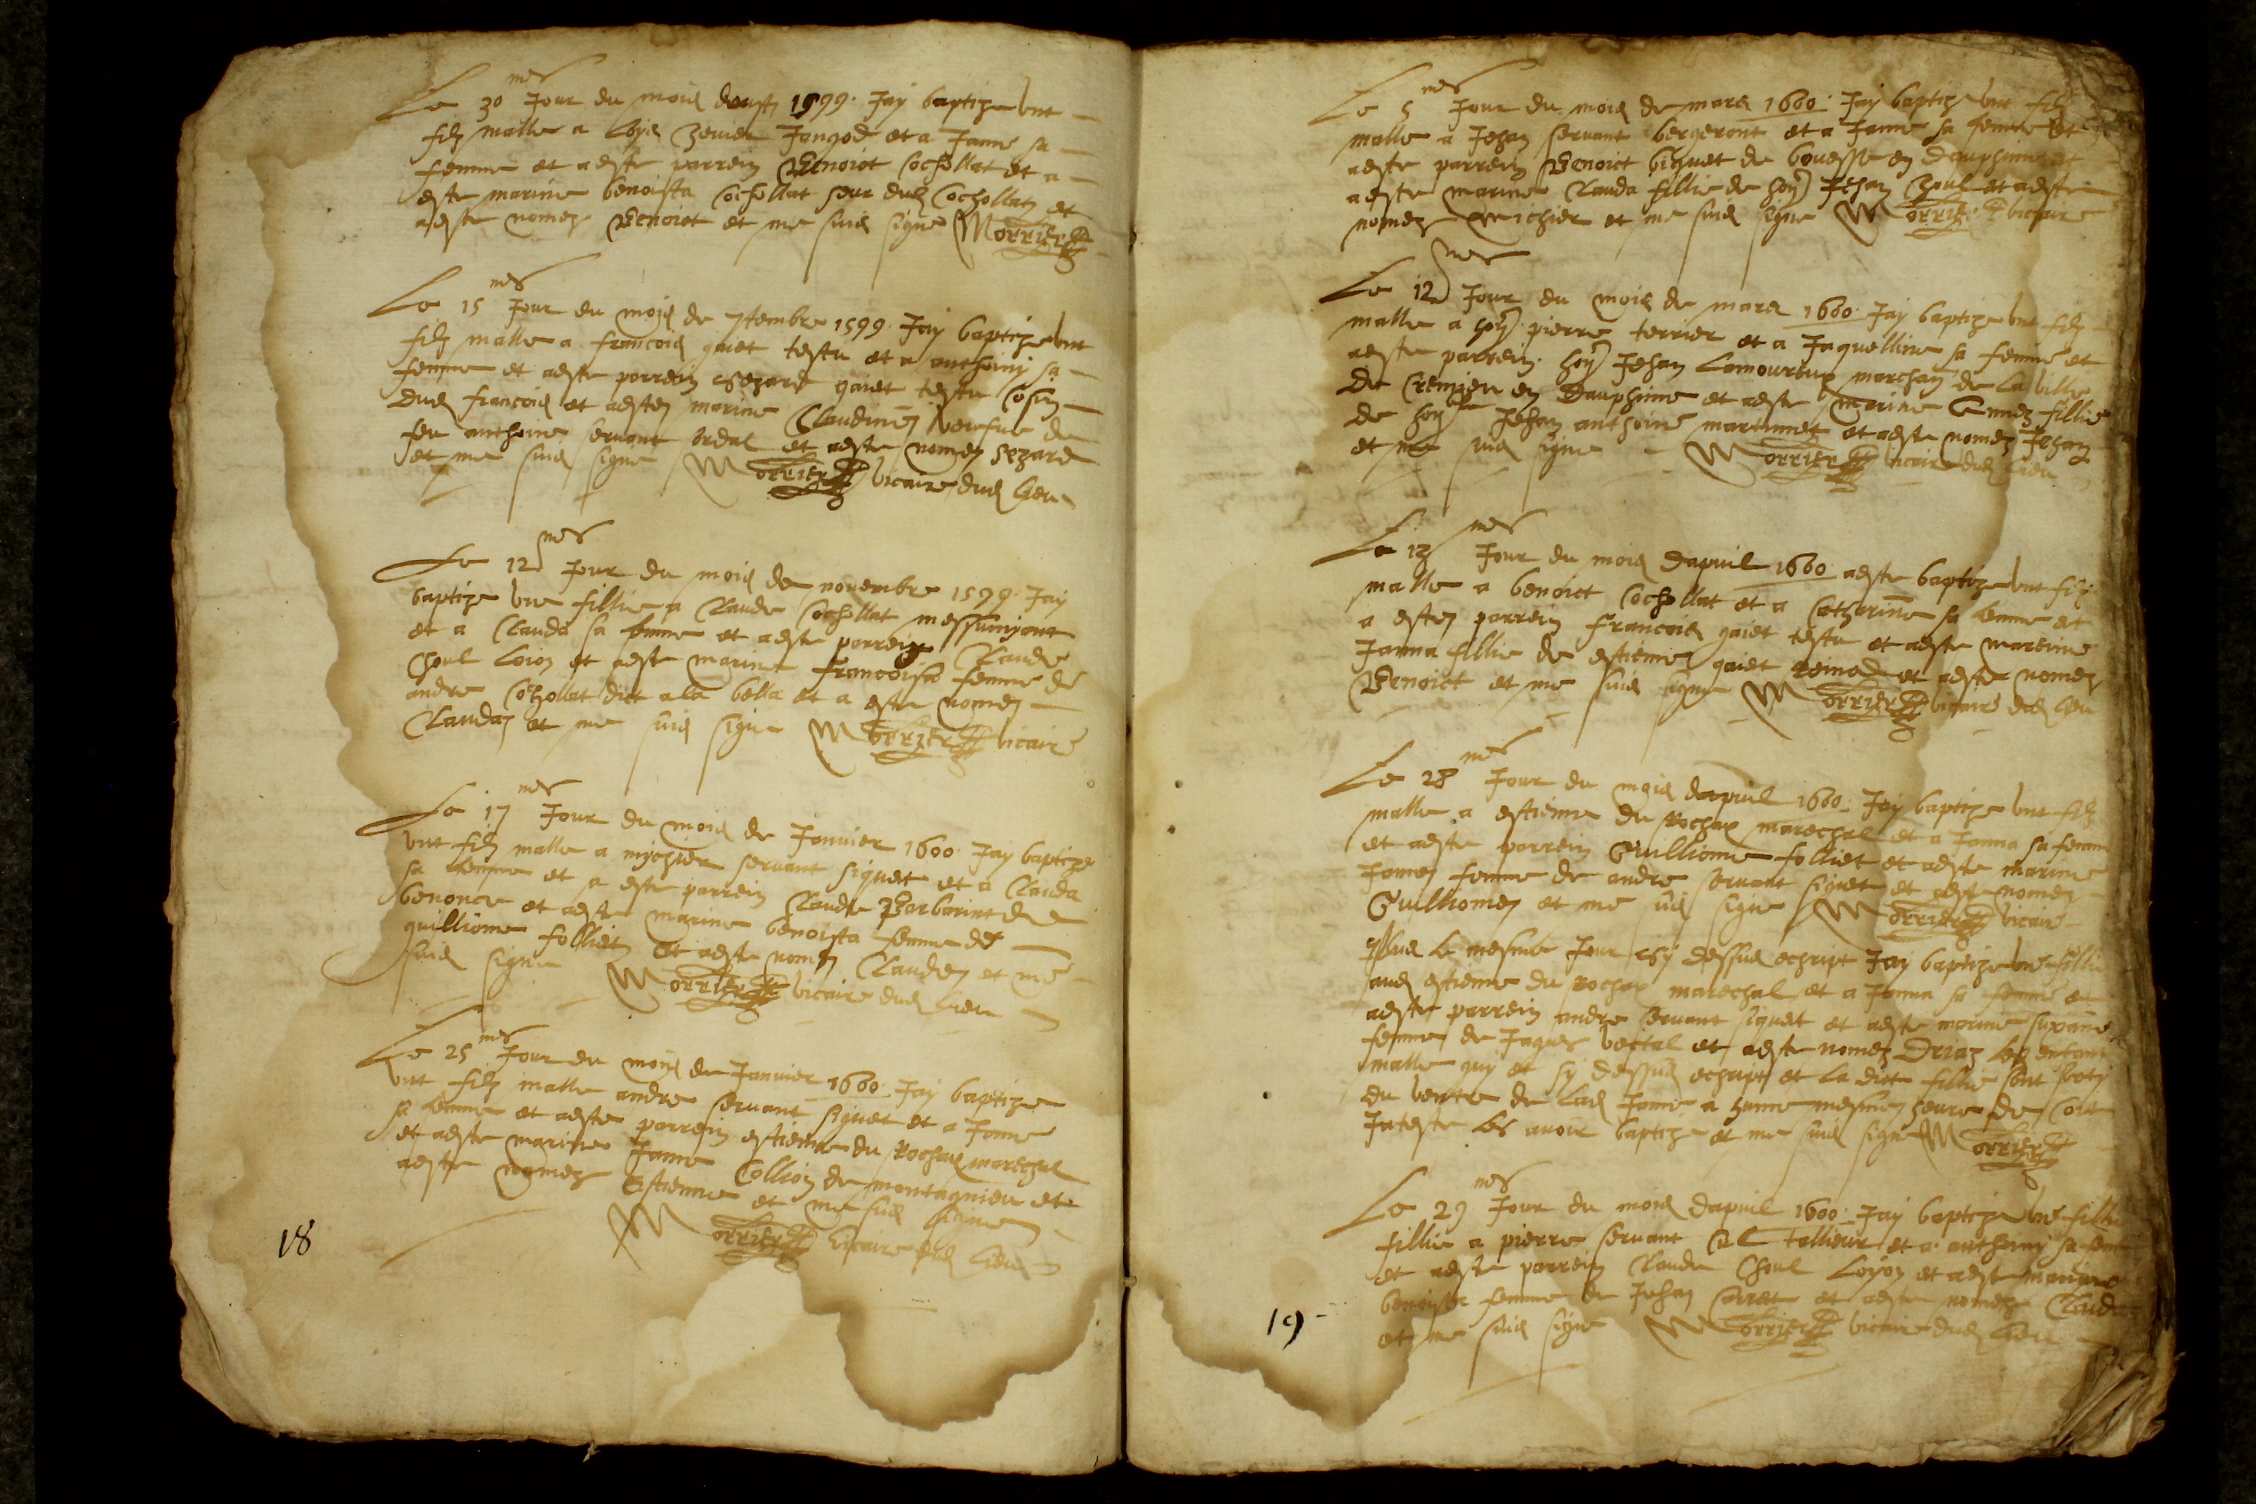 Le 30 mes Jour du mois daust 1599. Jay baptize unt
filz malle a Loys Jangod et a Jame sa
femme et a este parrein Benoict Cochollat et a
este marine benoista Cochollat seur dud Cochollatz et
a este nomez Benoict et me suis signe Morrier
Le 15 mes Jour du mois de 7tembre 1599. Jay baptize unt
filz malle a francois gaiet testu et a anthoiny sa
femme et a este parrein Sezard gaiet testu Cosin
dud francois et a estez marine Claudine veufue de
feu anthoine servant et a este nomez Sezard
et me suis signe Morrier vicaire dud lieu
Le 12 mes Jour du mois de novembre 1599. Jay
baptize une fillie a Claude Cochollat messumyant
et a Clauda sa femme et a este parrein Claude
Choul Loion et a este marine francoisa femme de
andre Cochollat dict a la bella et a este nomez
Claudaz et me suis signe Morrier vicaire
Le 17 mes Jour du mois de Janvier 1600. Jay baptize
unt filz malle a mychier servant siquet et a Clauda
sa femme et a este parrein Claude Barbarint de
benonce et a este marine benoista femme de
guilliome folliet et a este nomez Claudez et me
suis signe Morrier vicaire dud lieu
Le 25 mes Jour du mois de Janvier 1600. Jay baptize
unt filz malle andre servant siquet et a Jame
sa femme et a este parrein estienne du Rochaz marechal
et a este marine Jame Collion de montagnieu et
a este nomez Estienne et me suis signe
Morrier vicaire dud lieu
18
Le 5 mes Jour du mois de mars 1600. Jay baptize unt filz
malle a Jehan servant bergeront et a Jame sa femme et
a este parrein Benoict biguet de bouesse en dauphine et
a este marine Clauda fillie de hon Jehan Choul et a este
nomez michier et me suis signe Morrier vicaire
Le 12 mes Jour du mois de mars 1600. Jay baptize unt filz
malle a hon pierre terrier et a Jaquelline sa femme et
a este parrein hon Jehan Lamouroux marchan de la ville
de Cremieu en Dauphine et a este marine fillie
de hon Jehan anthoine martinnet et a este nomez Jehan
et me suis signe Morrier vicaire dud lieu
Le 12 mes Jour du mois dapvril 1600. a este baptize unt filz
malle a benoict Cochollat et a Catherine sa femme et
a estez parrein francois gaiet testu et a este mareine
Janna fillie de estienne gaiet et a este nomez
Benoict et me suis signe Morrier vicaire dud lieu
Le 28 mes Jour du mois dapvril 1600. Jay baptize unt filz
malle a estienne du Rochaz marechal et a Janna sa femme
et a este parrein Guilliome folliet et a este marine
Jamez femme de andre servant siquet et a este nomez
Guilliomez et me suis signe Morrier vicaire
plus le mesme Jour cy dessus escript Jay baptize une fillie
aud estienne du Rochaz marechal et a Janna sa femme et
a este parrein andre servant siquet et a este marine suzane
femme de Jaques vectal et a este nomez Driaz les enfans
malle quy est sy dessus escript et la dict fillie sont sorty
du ventre de lad Jame a hunne mesme heure de Coix
Jateste les avoir baptize et me suis signe Morrier
Le 29 mes Jour du mois dapvril 1600. Jay baptize une fillie
fillie a pierre servant tallieur et a anthoiny sa femme
et a este parrein Claude Choul Loyon et a este marine
benoista femme de Jehan Carret et a este nomez Claud
et me suis signe Morrier vicaire dud lieu
19